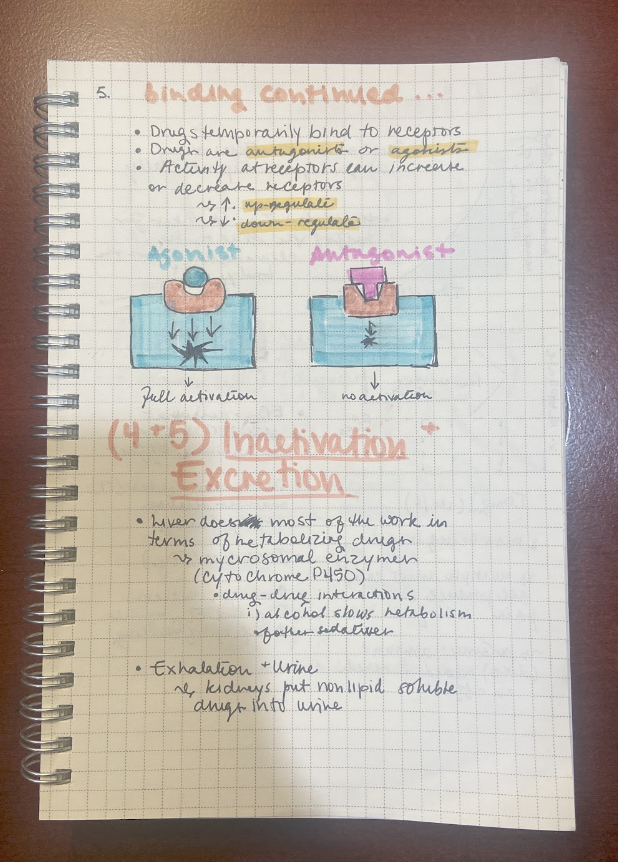 5. binding continued ...
• Drugs temporarily bind to receptors
• Drugs are antagonists or agonists
• Activity at receptors can increase
or decrease receptors
↳ ↑. up-regulate
↳ ↓. down-regulate
Agonist Antagonist
↓ ↓
full activation no activation
(4+5) Inactivation +
Excretion
• Liver does most of the work in
terms of metabolizing drugs
↳ mycrosomal enzymes
(cytochrome P450)
• drug-drug interactions
i) alcohol slows metabolism
of other sedatives
• Exhalation + Urine
↳ kidneys put nonlipid soluble
drugs into urine